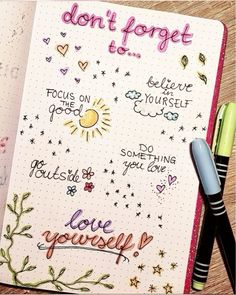 don't forget
to...
believe
in
YOURSELF
FOCUS ON
THE
good
DO
SOMETHING
YOU LOVE
go
outside
love
yourself!